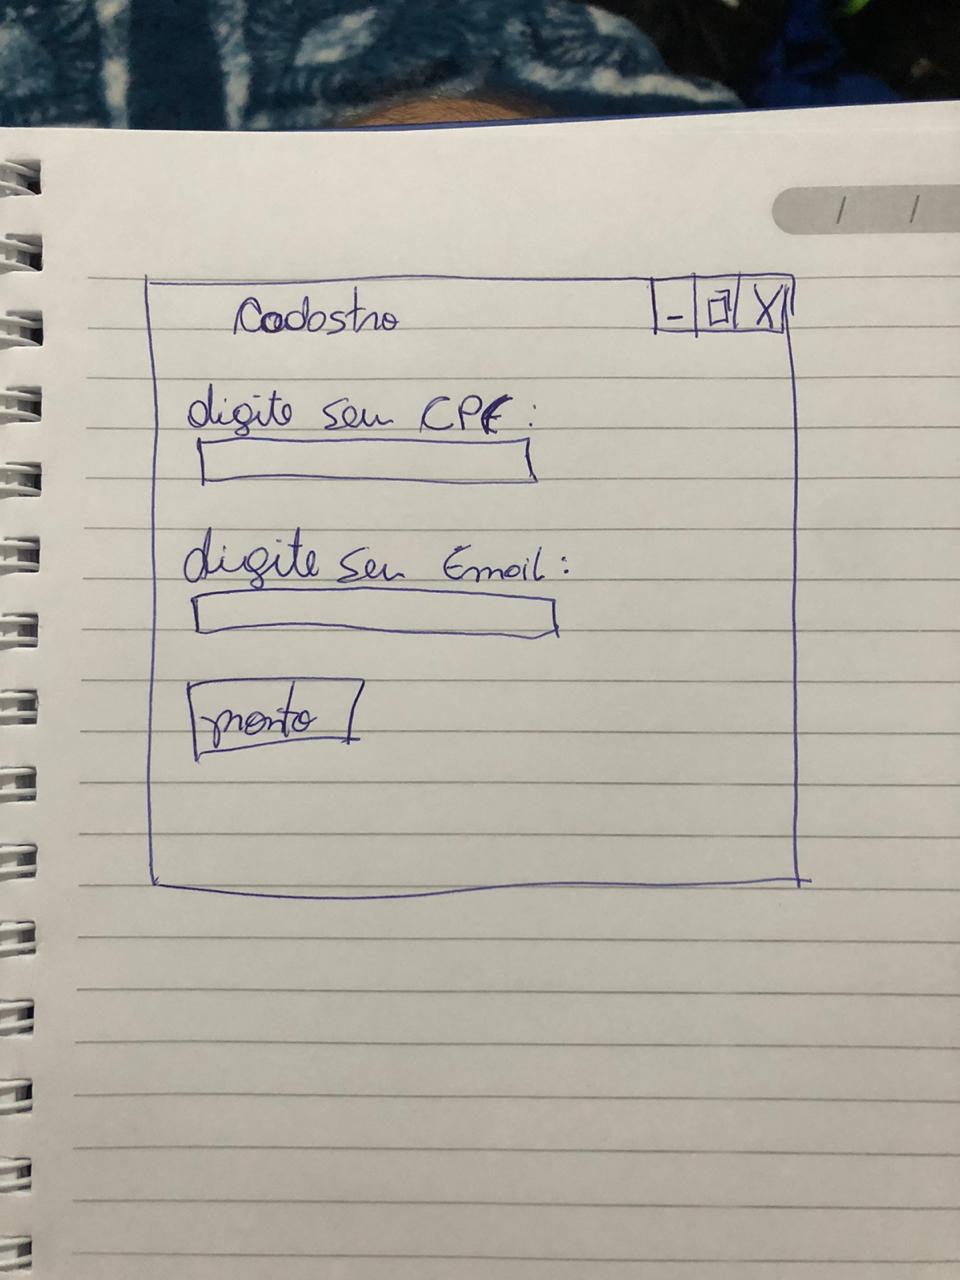 Cadastro
- X
digite seu CPF:
digite seu Email:
pronto
/ /